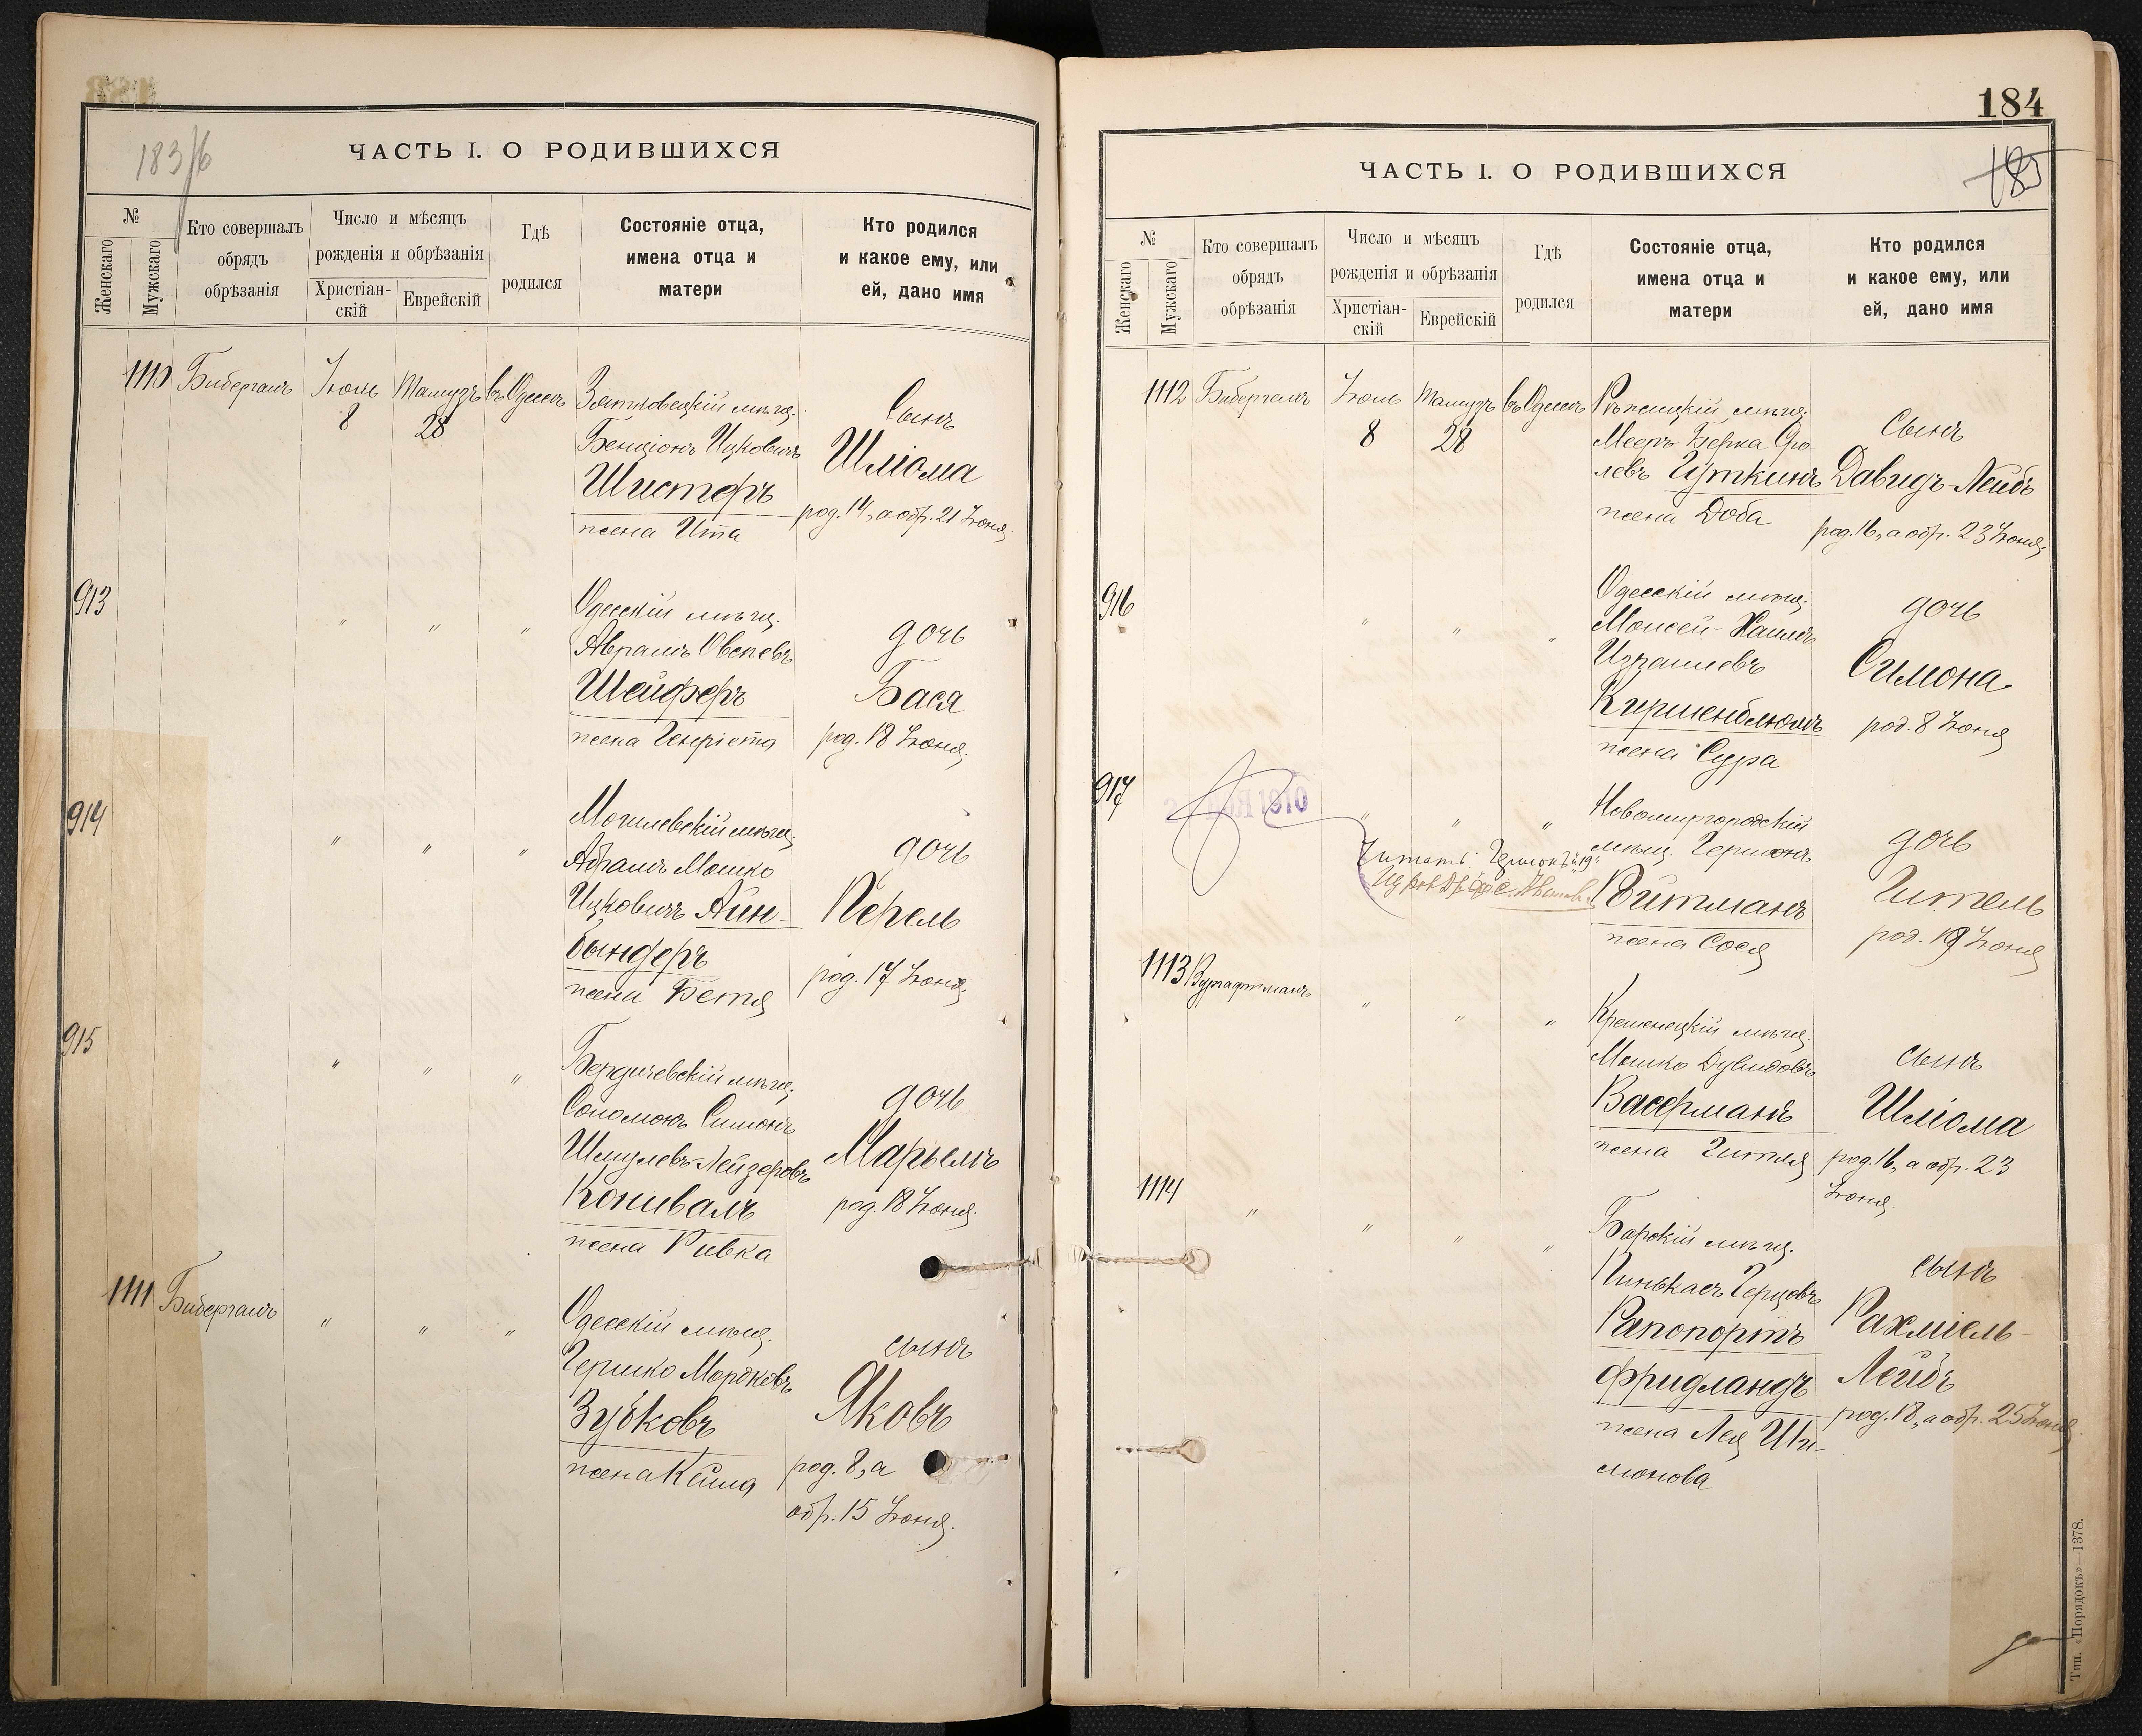 183/б
ЧАСТЬ I. О РОДИВШИХСЯ
№
Женскаго
Мужскаго
Кто совершалъ
обрядъ
обрѣзанія
Число и мѣсяцъ
рожденія и обрѣзанія
Христіан-
скій
Еврейскій
Гдѣ
родился
Состояніе отца,
имена отца и
матери
Кто родился
и какое ему, или
ей, дано имя
1110 Бибергалъ Іюль Тамузъ въ Одессѣ
8 28
мѣщ.
Бенціонъ Ицковичъ
Шистеръ
жена Ита
Сынъ
Шліома
род. 14, а обр. 21 Іюня.
913 " " "
Одесскій мѣщ.
Абрамъ Овсеевъ
Шейферъ
жена Генріета
дочь
Бася
род. 18 Іюня.
914 " " "
Могилевскій мѣщ.
Абрамъ Мошко
Ицковичъ Айн-
биндеръ
жена Бетя
дочь
Перель
род. 17 Іюня.
915 " " "
Бердичевскій мѣщ.
Соломонъ Симонъ
Шмулевъ-Лейзеровъ
Конивалъ
жена Ривка
дочь
Марьемъ
род. 18 Іюня.
1111 Бибергалъ " " "
Одесскій мѣщ.
Гершко Мордковъ
Зубковъ
жена Кейла
сынъ
Яковъ
род. 8, а
обр. 15 Іюня.
184
185
ЧАСТЬ I. О РОДИВШИХСЯ
№
Женскаго
Мужскаго
Кто совершалъ
обрядъ
обрѣзанія
Число и мѣсяцъ
рожденія и обрѣзанія
Христіан-
скій
Еврейскій
Гдѣ
родился
Состояніе отца,
имена отца и
матери
Кто родился
и какое ему, или
ей, дано имя
1112 Бибергалъ Іюль Тамузъ въ Одессѣ
8 28
мѣщ.
Мееръ Берка Сро-
левъ Гуткинъ
жена Доба
Сынъ
Давидъ-Лейбъ
род. 16, а обр. 23 Іюня.
916 " " "
Одесскій мѣщ.
Моисей-Хаимъ
Израилевъ
Киршенблюмъ
жена Сура
дочь
Симона
род. 8 Іюня
917 " " "
1910
Читать:
Новомиргородскій
мѣщ. Гершонъ
Ройтманъ
жена Сося
дочь
Гитель
род. 19 Іюня
1113 Вургафтманъ " " "
Кременецкій мѣщ.
Мошко Дувидовъ
Васерманъ
жена Гитля
сынъ
Шліома
род. 16, а обр. 23
Іюня.
1114 " " " "
Барскій мѣщ.
Пинькасъ Герцовъ
Рапопортъ
Фридландъ
жена Лея Ши-
монова
сынъ
Рахміель-
Лейбъ
род. 18, а обр. 25 Іюня
Тип. «Порядокъ»—1378.